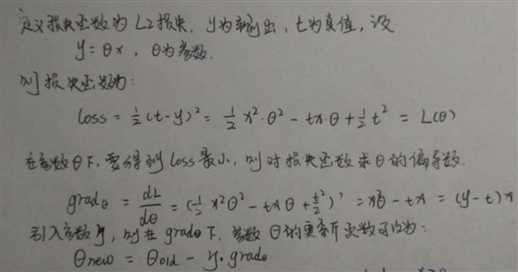 定义损失函数为 L2 损失, y为输出, t为真值, 设
y = θx , θ为参数.
则损失函数为:
loss = ½(t-y)² = ½x²·θ² - txθ + ½t² = L(θ)
在参数θ下, 要得到 loss 最小, 则对损失函数求θ的偏导数.
gradθ = dL/dθ = (½x²θ² - txθ + t²/2)' = x²θ - tx = (y-t)x
引入参数η, 则在 gradθ 下, 参数θ的更新次数可以为:
θnew = θold - η·gradθ